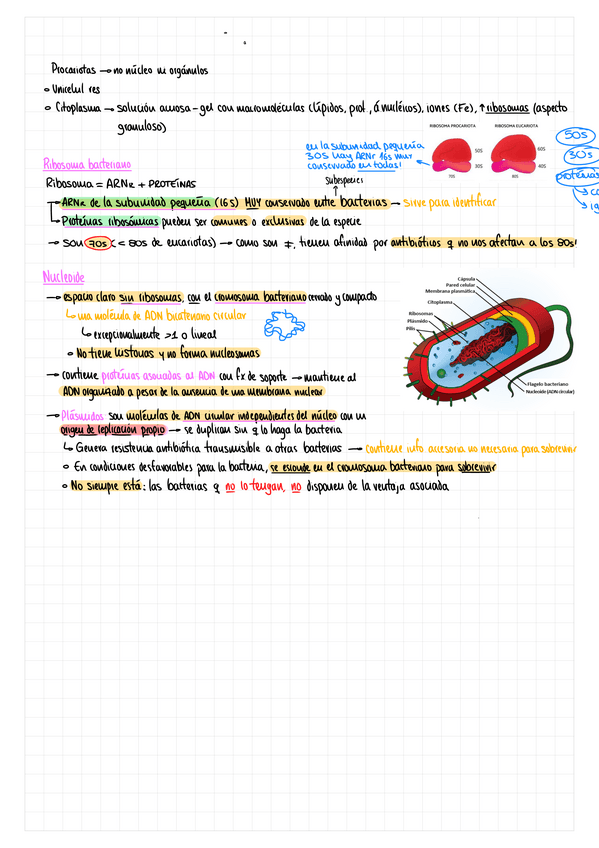 Procariotas → no núcleo ni orgánulos
◦ Unicelul res
◦ Citoplasma → solución acuosa-gel con macromoléculas (lípidos, prot, á nucléicos), iones (Fe), ↑ribosomas (aspecto
granuloso)
RIBOSOMA PROCARIOTA
RIBOSOMA EUCARIOTA
50S
30S
70S
60S
40S
80S
50s
30s
proteínas
en la subunidad pequeña
30S hay ARNr 16s muy
conservado en todas!
Ribosoma bacteriano
Ribosoma = ARNr + PROTEÍNAS
subespecies
→ ARNr de la subunidad pequeña (16 S) MUY conservado entre bacterias → sirve para identificar
↳ Proteínas ribosómicas pueden ser comunes o exclusivas de la especie
→ son 70s (< 80s de eucariotas) → como son ≠, tienen afinidad por antibióticos q no nos afectan a los 80s!
Nucleoide
→ espacio claro sin ribosomas, con el cromosoma bacteriano cerrado y compacto
↳ una molécula de ADN bicateriano circular
↳ excepcionalmente >1 o lineal
◦ No tiene histonas y no forma nucleosomas
→ contiene proteínas asociadas al ADN con fx de soporte → mantiene al
ADN organizado a pesar de la ausencia de una membrana nuclear
→ Plásmidos son moléculas de ADN circular independientes del núcleo con un
origen de replicación propio → se duplican sin q lo haga la bacteria
↳ Genera resistencia antibiótica transmisible a otras bacterias → contiene info accesoria no necesaria para sobrevivir
◦ En condiciones desfavorables para la bacteria, se esconde en el cromosoma bacteriano para sobrevivir
◦ No siempre está: las bacterias q no lo tengan, no disponen de la ventaja asociada
Cápsula
Pared celular
Membrana plasmática
Citoplasma
Ribosomas
Plásmido
Pilis
Flagelo bacteriano
Nucleoide (ADN circular)